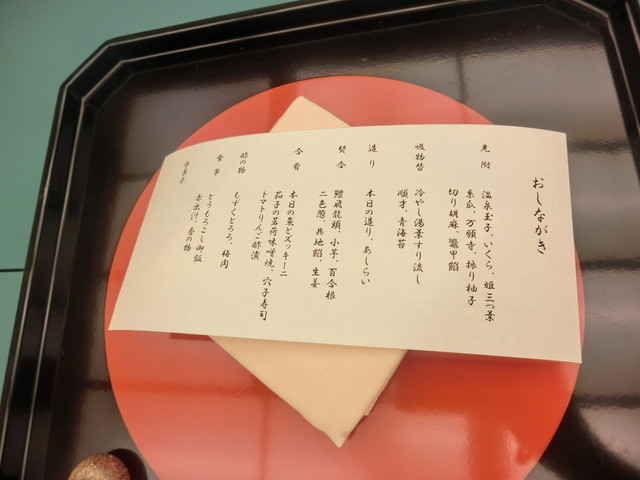 おしながき
先附
温泉玉子、いくら、姫三つ葉
糸瓜、万願寺、振り柚子
切り胡麻、鼈甲餡
吸物替
冷やし湯葉すり流し
順才、青海苔
造り
本日の造り、あしらい
焚合
鱧飛龍頭、小芋、百合根
二色葱、共地餡、生姜
合肴
本日の魚とズッキーニ
茄子の茗荷味噌焼、穴子寿司
トマトりんご酢漬
酢の物
もずくとろろ、梅肉
食事
とうもろこし御飯
赤出汁、香の物
水菓子